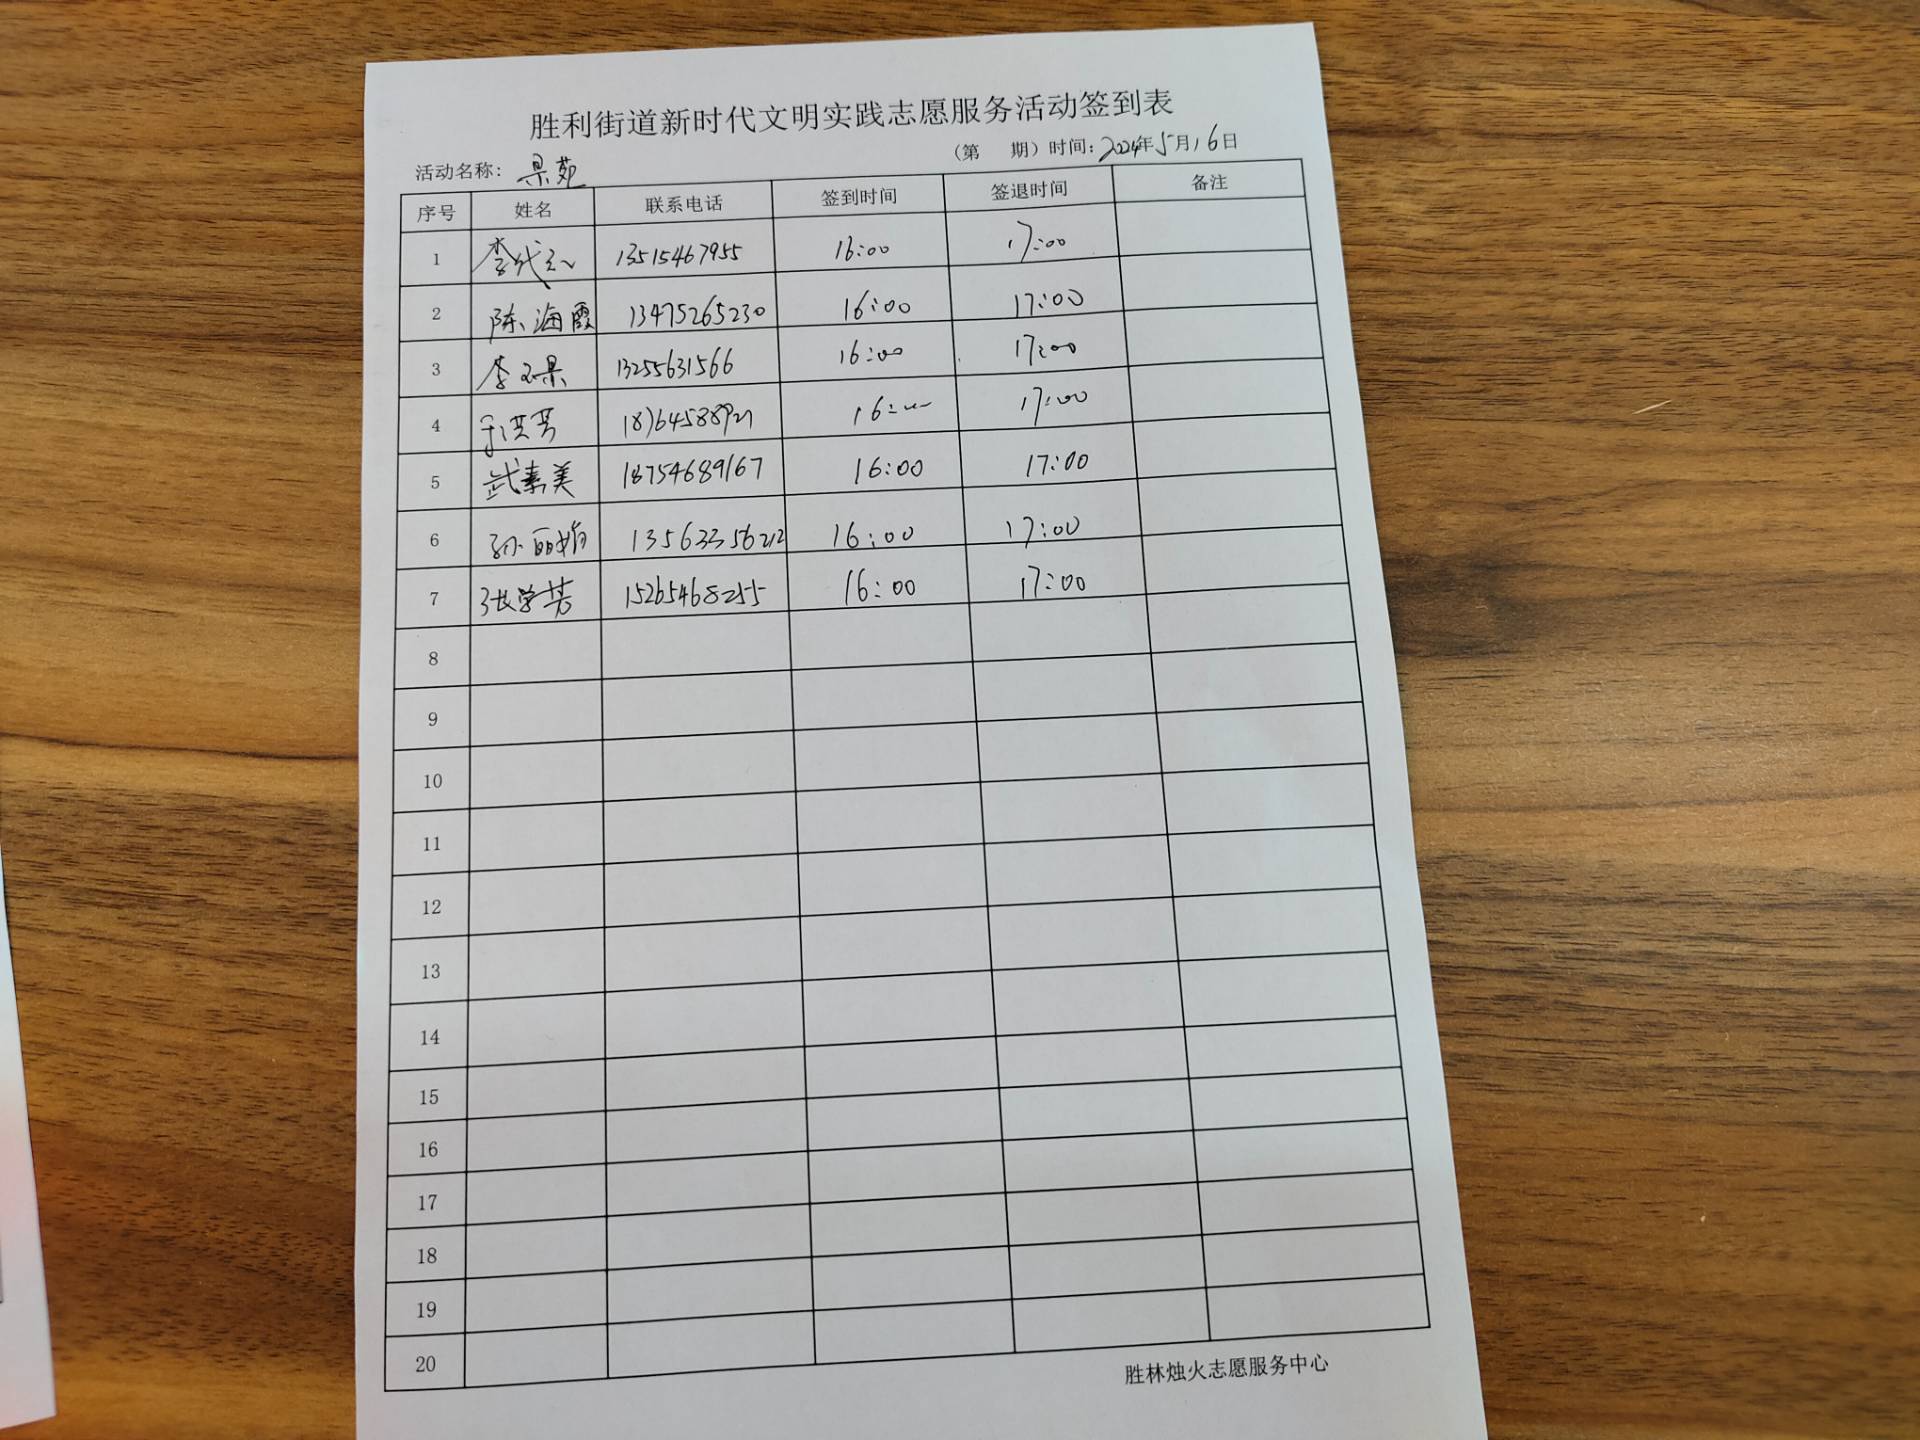 胜利街道新时代文明实践志愿服务活动签到表
活动名称: 景苑 (第 期) 时间: 2024年5月16日
序号 姓名 联系电话 签到时间 签退时间 备注
1 李代 13515467955 16:00 17:00
2 陈海霞 13475265230 16:00 17:00
3 李玉景 13255631566 16:00 17:00
4 于洪芳 18764588921 16:00 17:00
5 武素美 18754689167 16:00 17:00
6 孙丽娟 13563356212 16:00 17:00
7 张学芳 15265468255 16:00 17:00
8
9
10
11
12
13
14
15
16
17
18
19
20
胜林烛火志愿服务中心